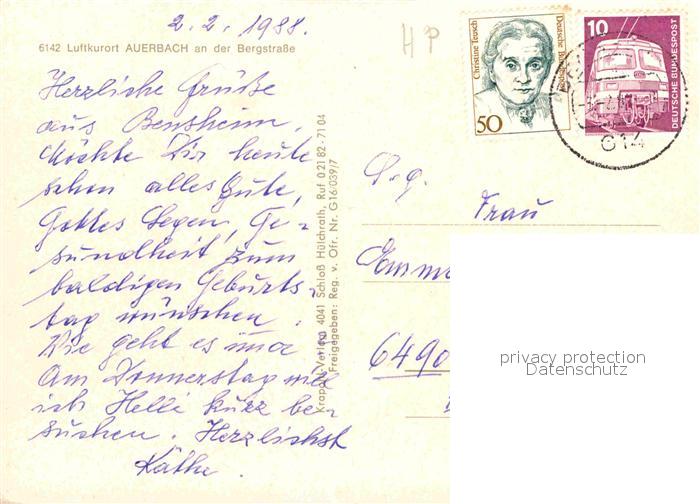 2.2.1988.
HP
6142 Luftkurort AUERBACH an der Bergstraße
Herzliche Grüße
aus Bensheim.
Möchte Dir heute
schon alles Gute,
Gottes Segen, Ge-
sundheit zum
baldigen Geburts-
tag wünschen.
Wie geht es
Am Donnerstag
ich Helli kurz be-
suchen. Herzlichst
Käthe.
Krapohl-Verlag 4041 Schloß Hülchrath, Ruf 0 21 82-71 04
Freigegeben: Reg. v. Ofr. Nr. G 16/039/7
Christine Teusch
Deutsche Bundespost
50
10
DEUTSCHE BUNDESPOST
614
Frau
6490
privacy protection
Datenschutz